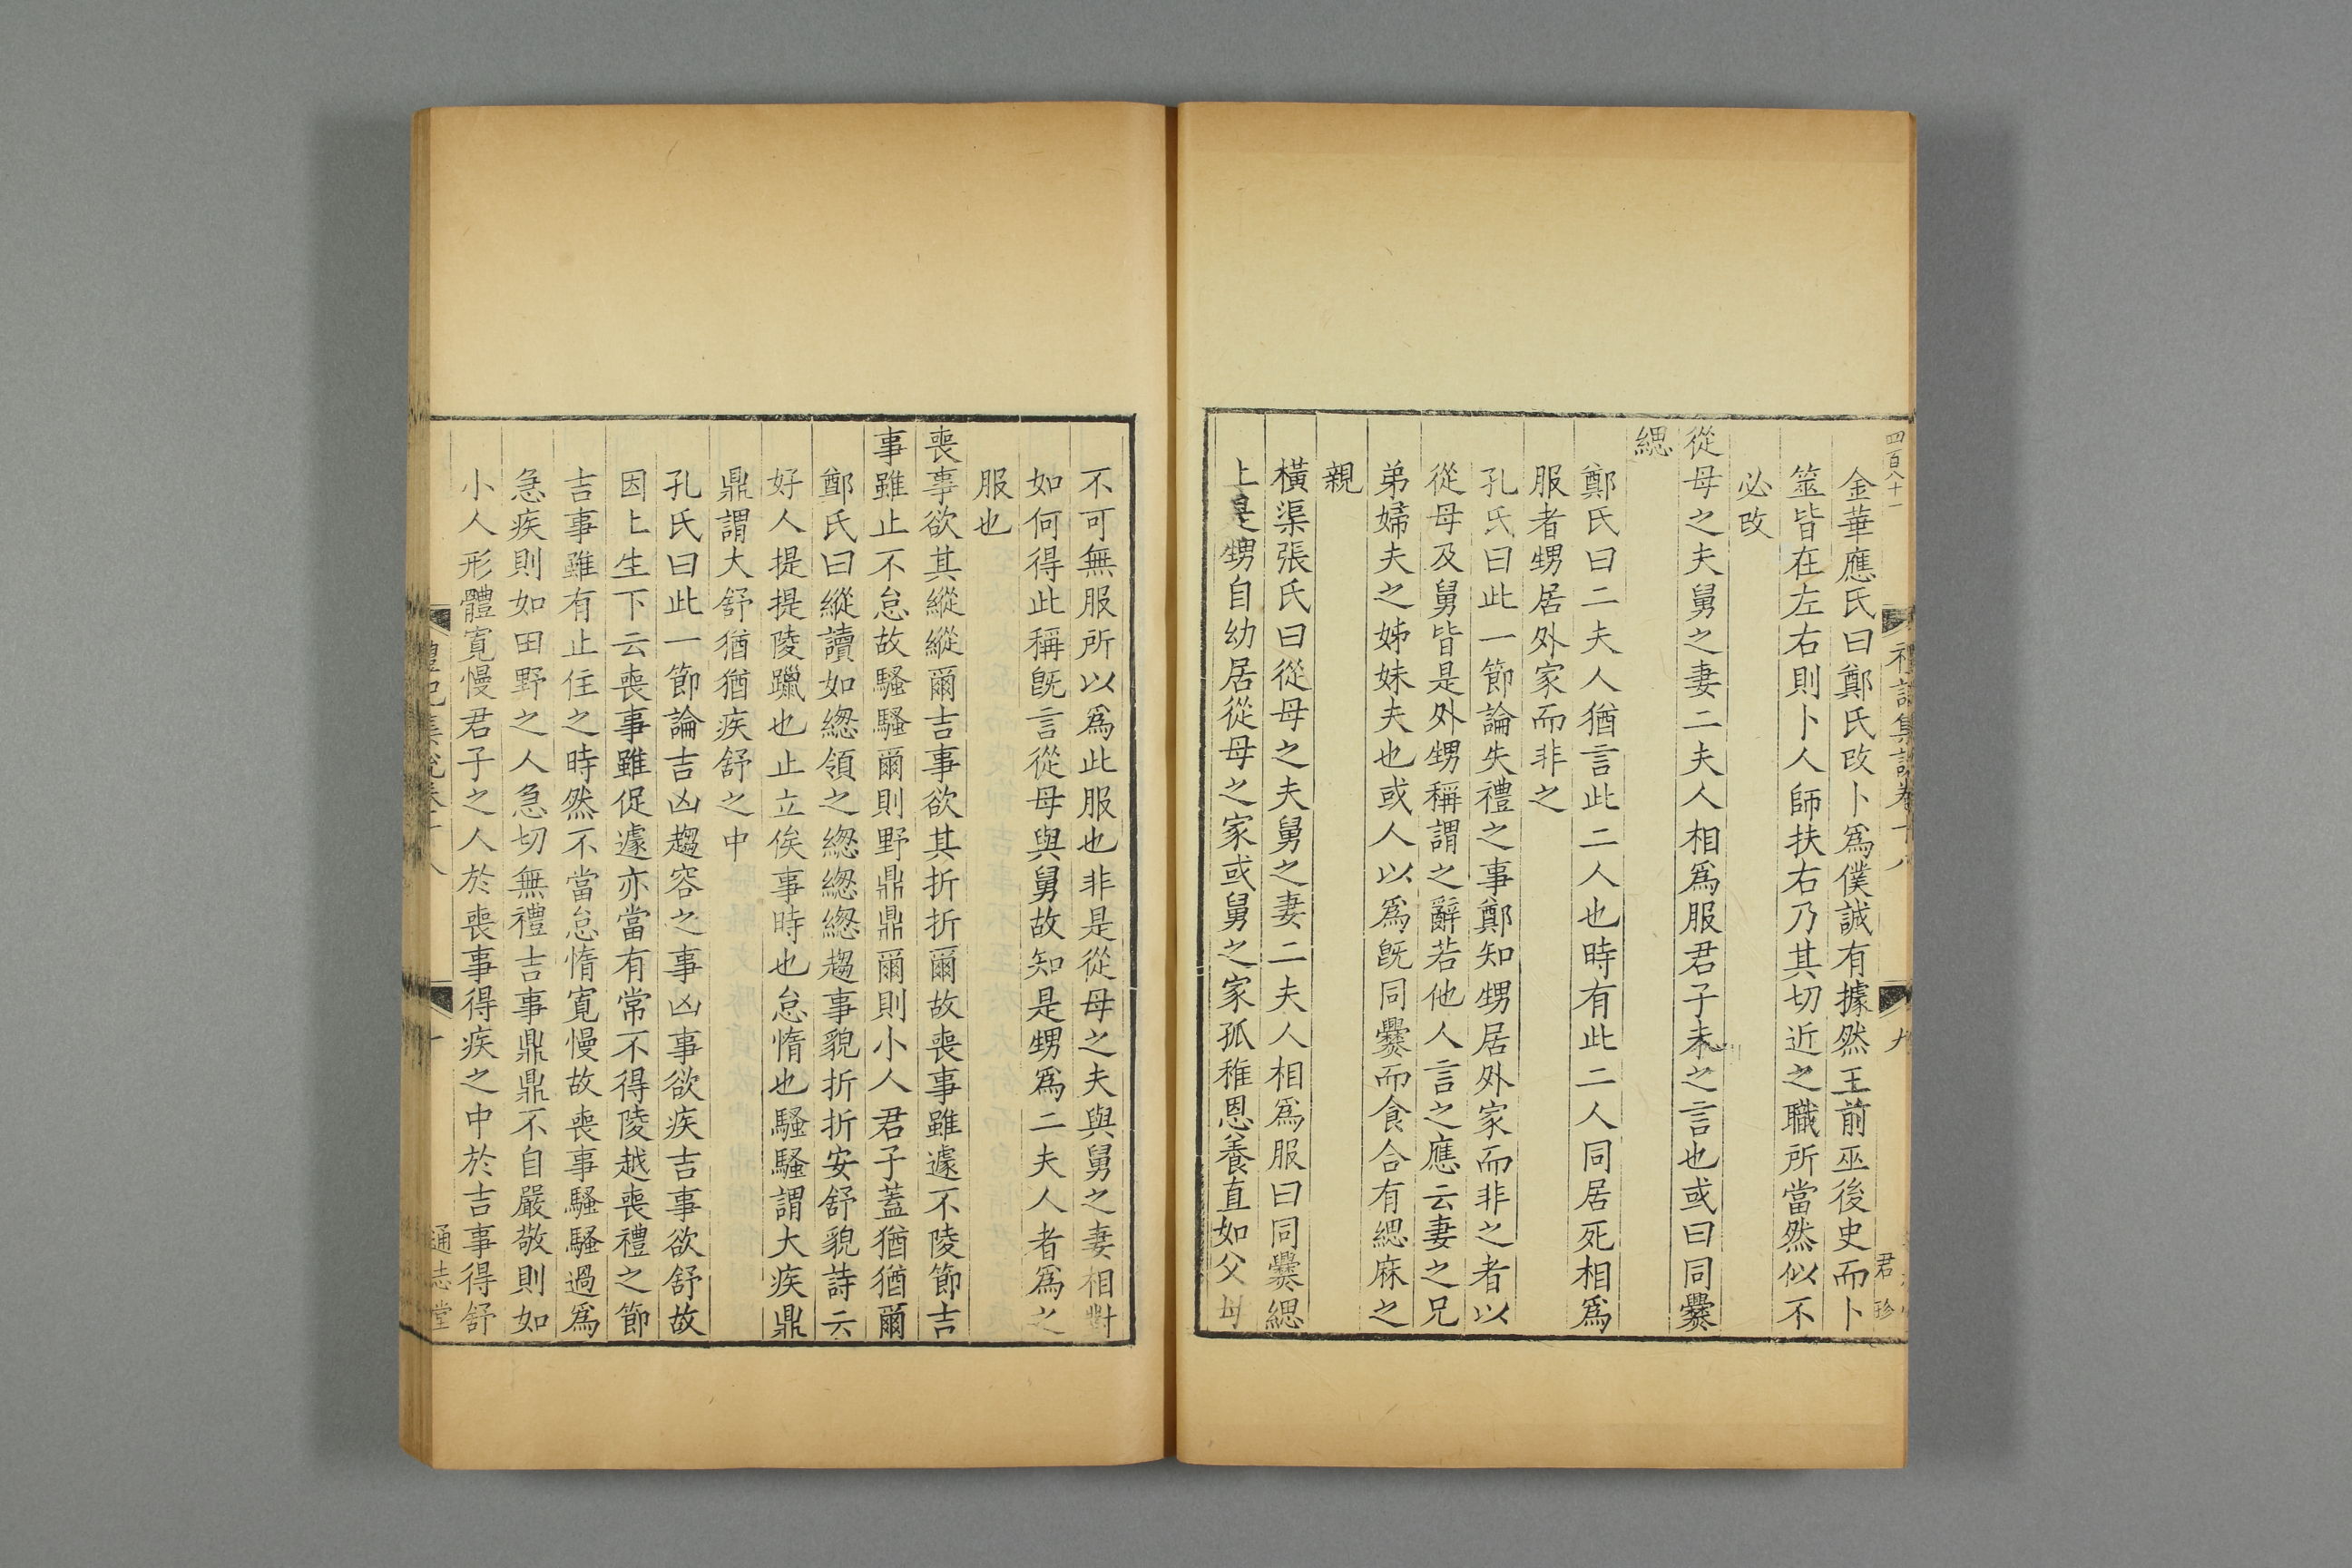 四百八十一
禮記集說卷十八
九
君珍
金華應氏曰鄭氏改卜爲僕誠有據然王前巫後史而卜
筮皆在左右則卜人師扶右乃其切近之職所當然似不
必改
從母之夫舅之妻二夫人相爲服君子未之言也或曰同爨
緦
鄭氏曰二夫人猶言此二人也時有此二人同居死相爲
服者甥居外家而非之
孔氏曰此一節論失禮之事鄭知甥居外家而非之者以
從母及舅皆是外甥稱謂之辭若他人言之應云妻之兄
弟婦夫之姊妹夫也或人以爲旣同爨而食合有緦麻之
親
橫渠張氏曰從母之夫舅之妻二夫人相爲服曰同爨緦
上是甥自幼居從母之家或舅之家孤稚恩養直如父母
不可無服所以爲此服也非是從母之夫與舅之妻相對
如何得此稱旣言從母與舅故知是甥爲二夫人者爲之
服也
喪事欲其縱縱爾吉事欲其折折爾故喪事雖遽不陵節吉
事雖止不怠故騷騷爾則野鼎鼎爾則小人君子蓋猶猶爾
鄭氏曰縱讀如緫領之緫緫緫趨事貌折折安舒貌詩云
好人提提陵躐也止立俟事時也怠惰也騷騷謂大疾鼎
鼎謂大舒猶猶疾舒之中
孔氏曰此一節論吉凶趨容之事凶事欲疾吉事欲舒故
因上生下云喪事雖促遽亦當有常不得陵越喪禮之節
吉事雖有止住之時然不當怠惰寬慢故喪事騷騷過爲
急疾則如田野之人急切無禮吉事鼎鼎不自嚴敬則如
小人形體寬慢君子之人於喪事得疾之中於吉事得舒
禮記集說卷十八
十
通志堂